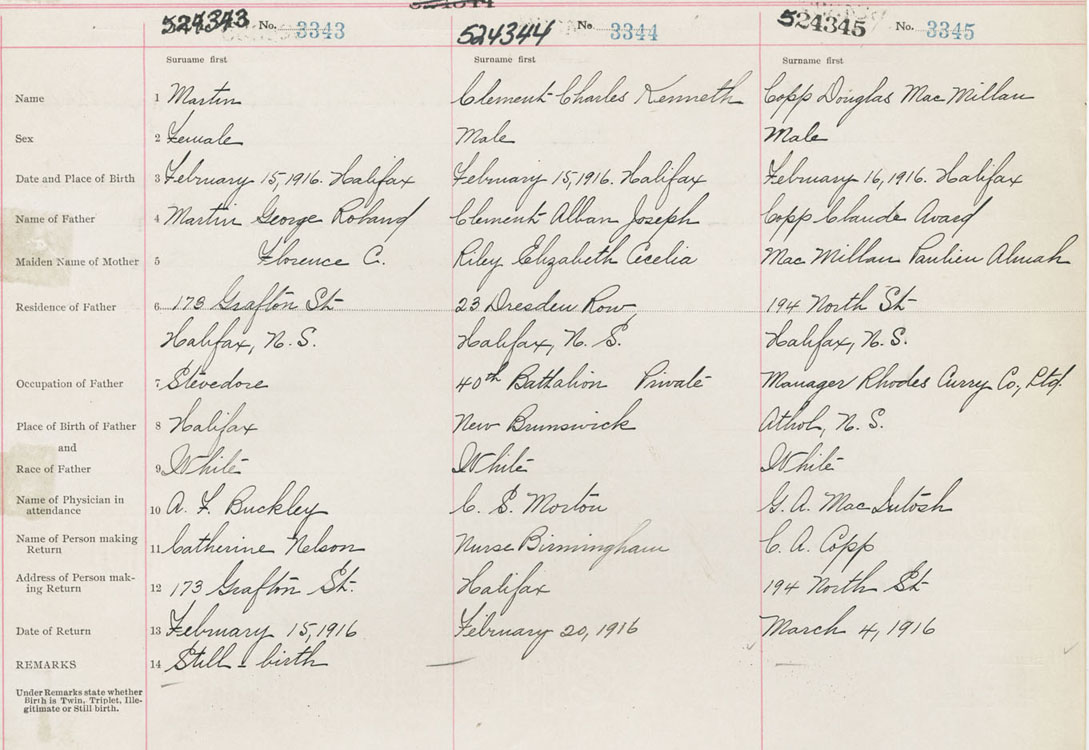 524343 No. 3343 524344 No. 3344 524345 No. 3345
Surname first Surname first Surname first
Name 1 Martin Clement Charles Kenneth Copp Douglas MacMillan
Sex 2 Female Male Male
Date and Place of Birth 3 February 15, 1916. Halifax February 15, 1916. Halifax February 16, 1916. Halifax
Name of Father 4 Martin George Roland Clement Alban Joseph Copp Claude Avard
Maiden Name of Mother 5 Florence C. Riley Elizabeth Cecelia MacMillan Paulien Almah
Residence of Father 6 173 Grafton St 23 Dresden Row, 194 North St
Halifax, N.S. Halifax, N.S. Halifax, N.S.
Occupation of Father 7 Stevedore 40th Battalion Private Manager Rhodes Curry Co., Ltd.
Place of Birth of Father 8 Halifax New Brunswick Athol, N.S.
and
Race of Father 9 White White White
Name of Physician in
attendance 10 A. F. Buckley C. S. Morton G. A. MacIntosh
Name of Person making
Return 11 Catherine Nelson Nurse Birmingham C. A. Copp
Address of Person mak-
ing Return 12 173 Grafton St. Halifax 194 North St
Date of Return 13 February 15, 1916 February 20, 1916 March 4, 1916
REMARKS 14 Still-birth
Under Remarks state whether
Birth is Twin, Triplet, Ille-
gitimate or Still birth.